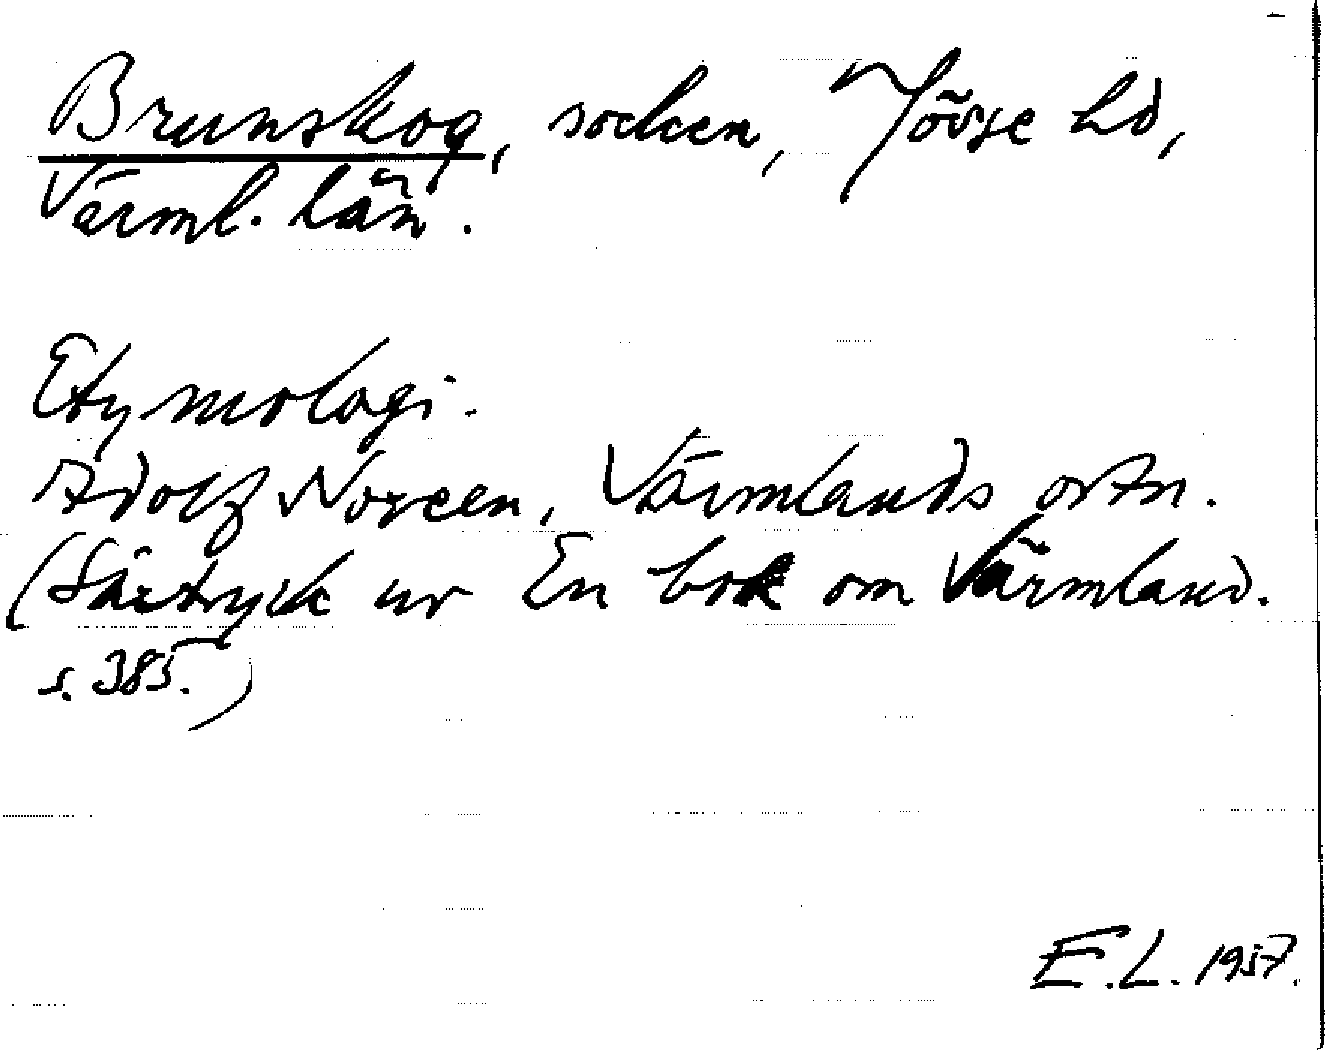 Brunskog, socken, Jösse hd,
Värml. län.
Etymologi.
Adolf Noreen, Värmlands ortn.
(Särtryck ur En bok om Värmland.
s. 385.)
E.L. 1957.